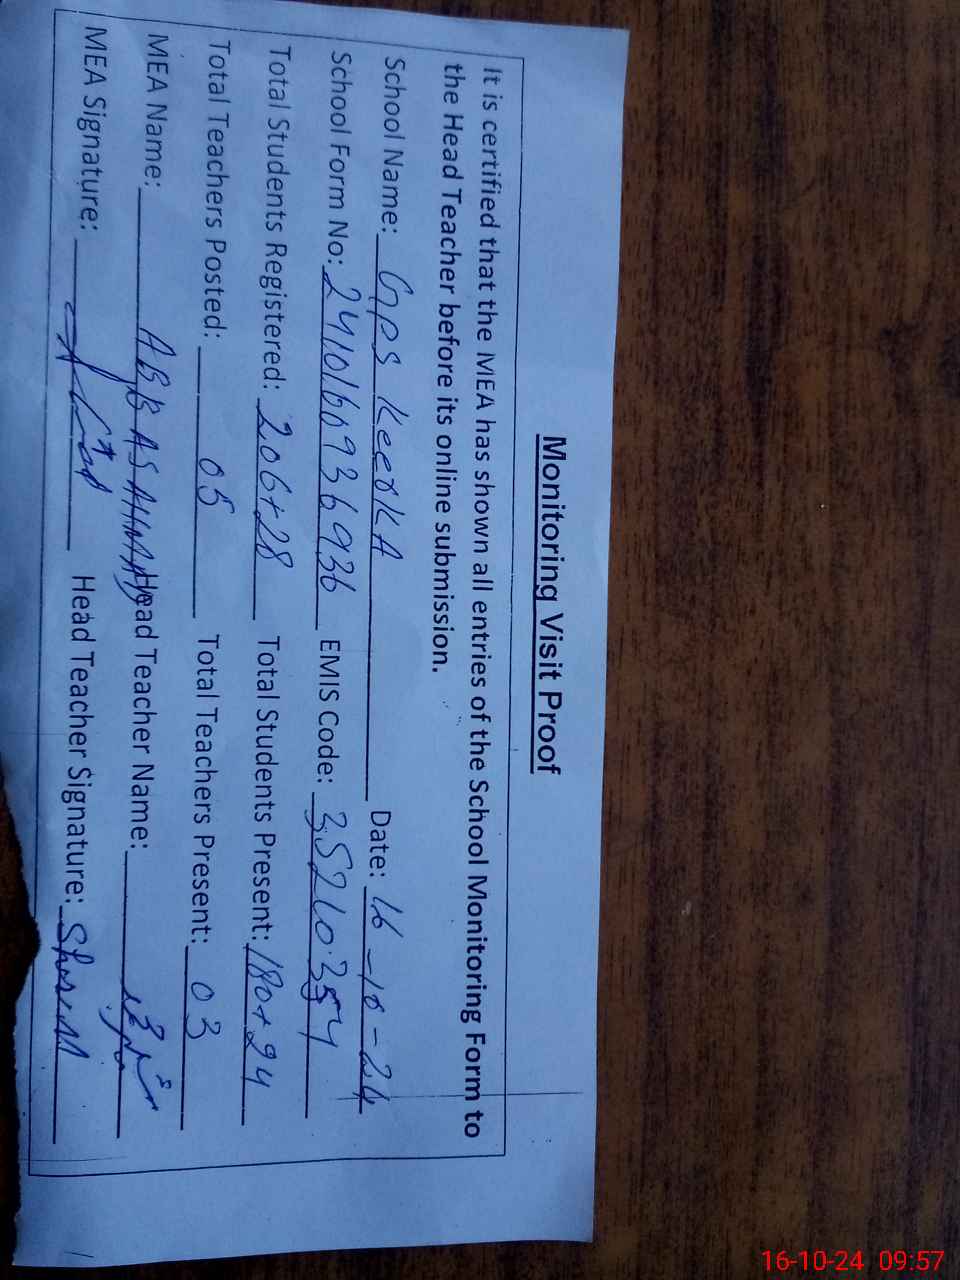 Monitoring Visit Proof
It is certified that the MEA has shown all entries of the School Monitoring Form to
the Head Teacher before its online submission.
School Name: GPS KeerKA Date: 16-10-24
School Form No: 2410160936936 EMIS Code: 35210354
Total Students Registered: 206+28 Total Students Present: 180+24
Total Teachers Posted: 05 Total Teachers Present: 03
MEA Name: ABBAS AHMAD Head Teacher Name:
MEA Signature: Head Teacher Signature:
16-10-24 09:57